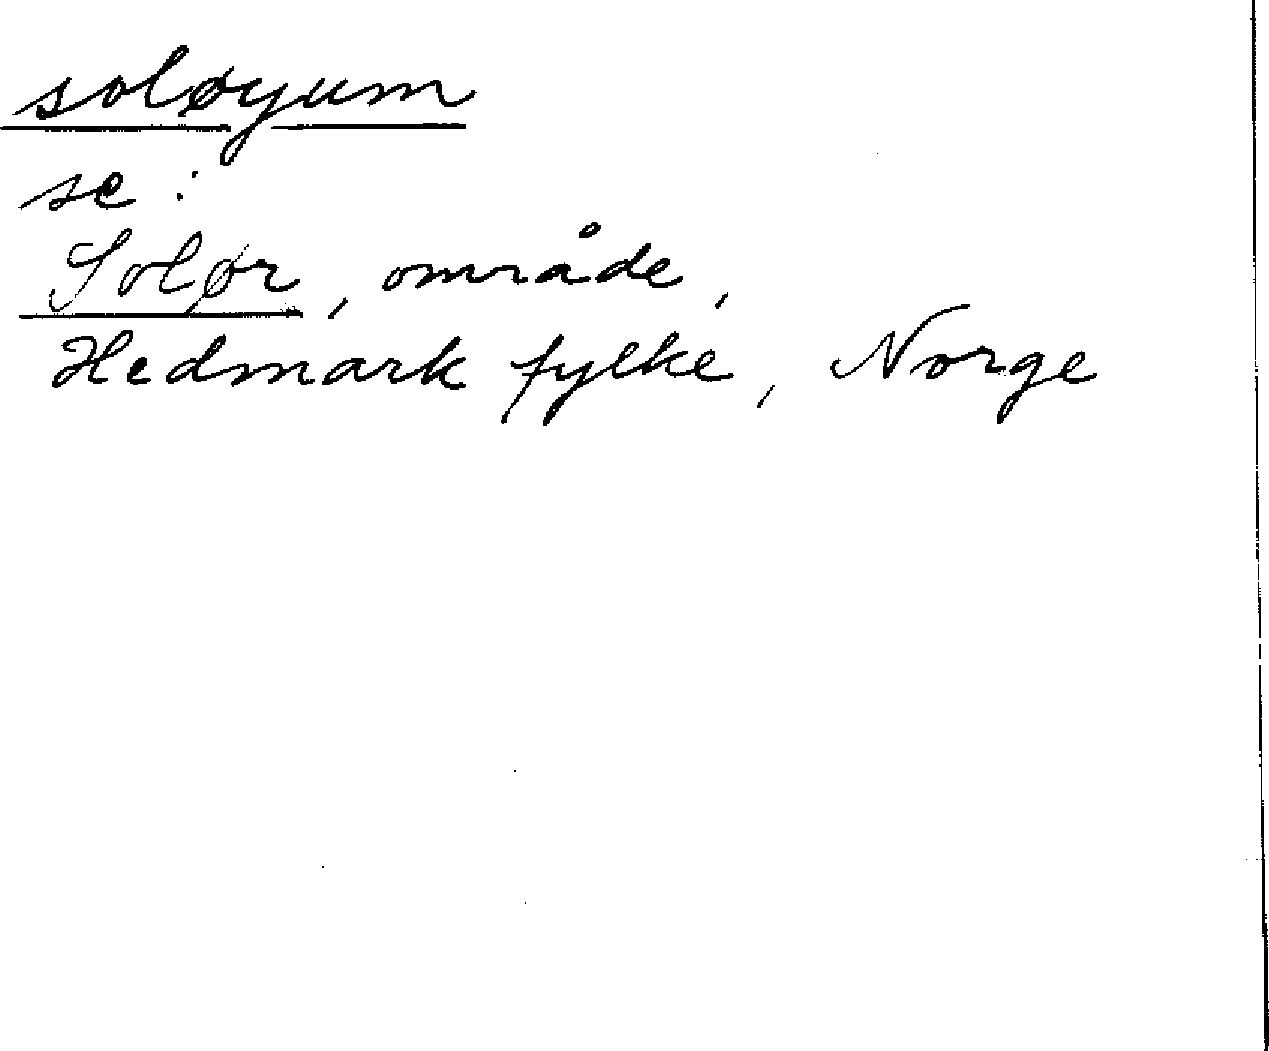 soløyum
se :
Solør, område,
Hedmark fylke, Norge